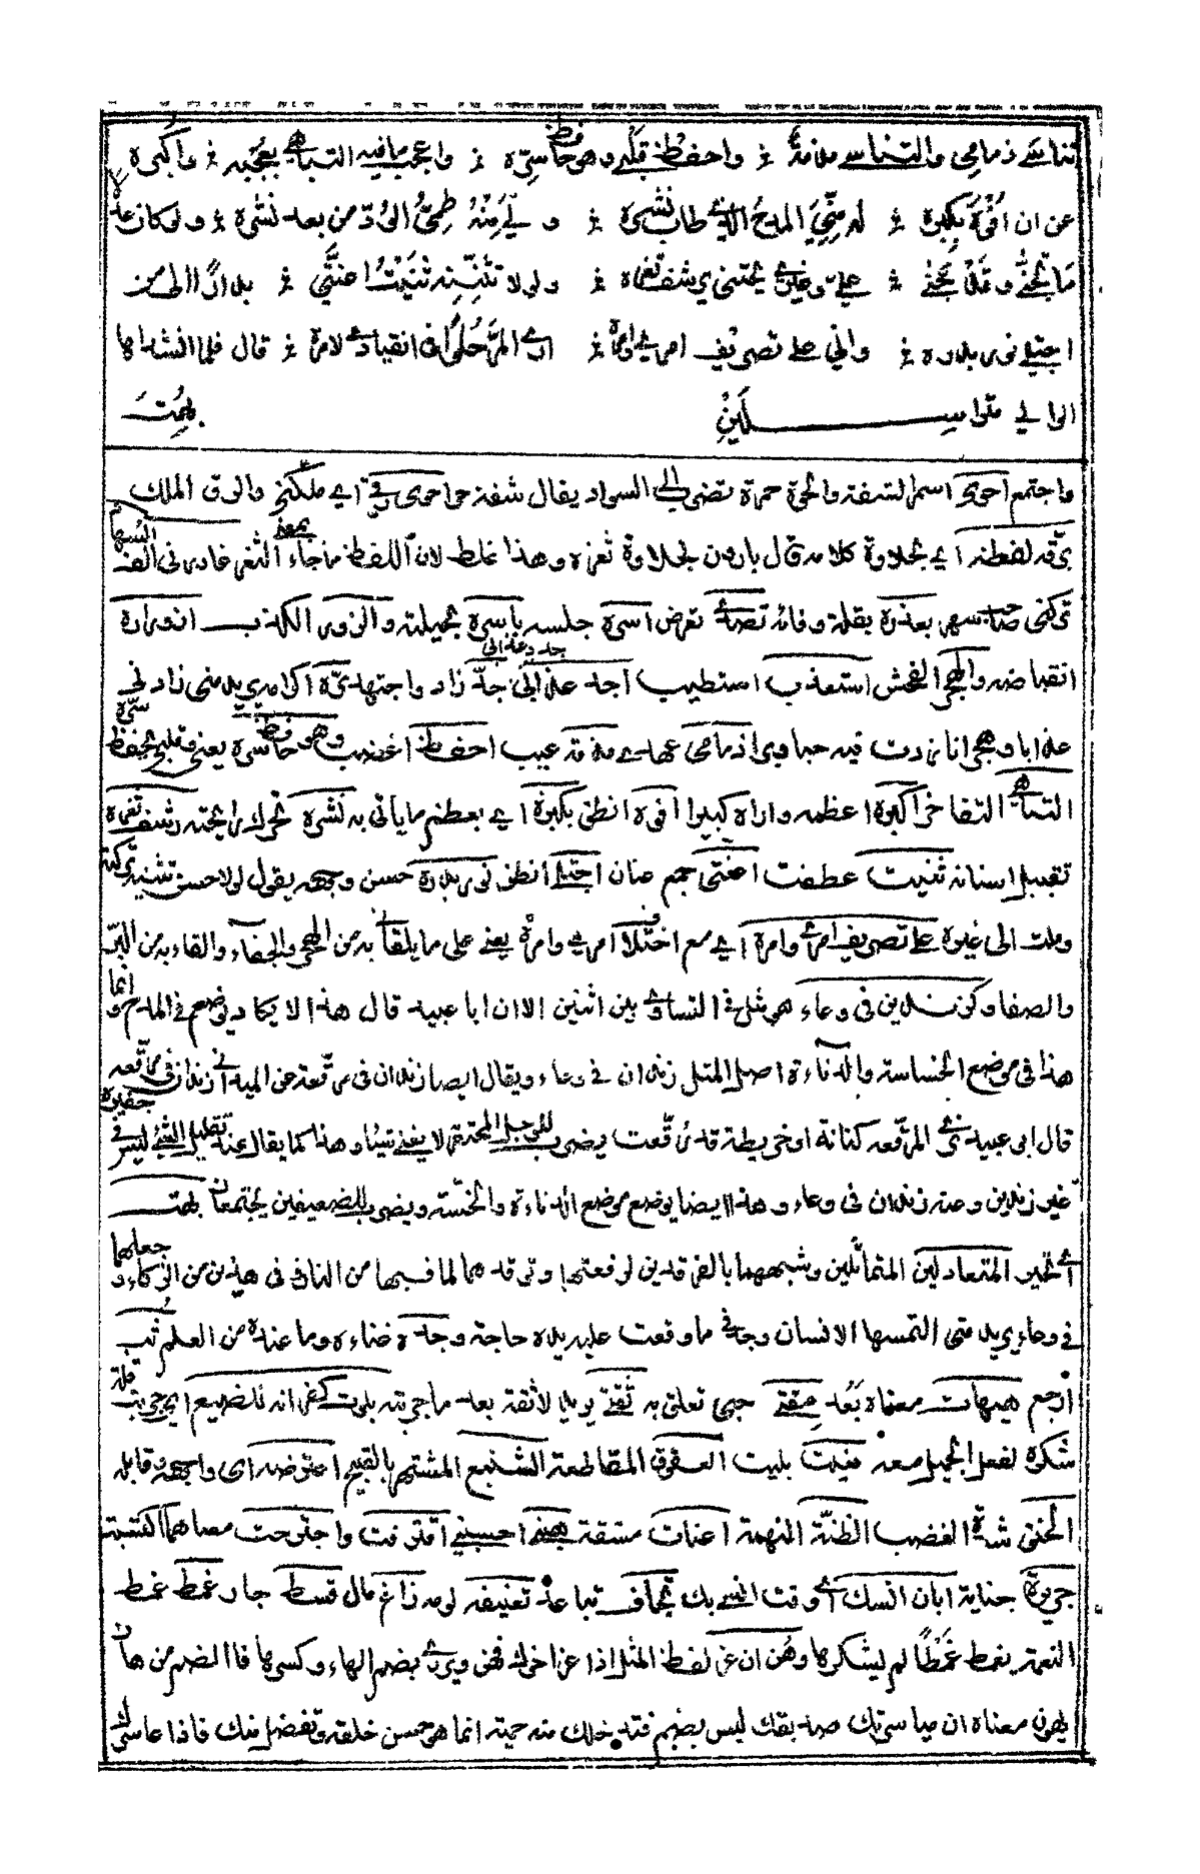 تناسى ذمامي والتناسي مذمة ⁘ واحفظ قلبي وهو حافظ سره ⁘ واعجب ما فيه التباهي بعجبه ⁘ واكبره
عن ان افوه بكبره ⁘ له مني المدح الذي طاب نشره ⁘ ولي منه طي الود من بعد نشره ⁘ ولو كان عدلا
ما تجنى وقد جنى ⁘ علي وغيري يجتني رشف ثغره ⁘ ولولا تثنيه ثنيت اعنتي ⁘ بدارا الى من
اجتلي نور بدره ⁘ واني على تصريف امري وامره ⁘ ارى المر حلوا في انقيادي لامره ⁘ قال فلما انشداها
الوالي متراسلين بهت
واجتمع احوى اسمر الشفة والحوة حمرة تضرب الى السواد يقال شفة حوا احوى رقي اي ملكني والرق الملك
برقة لفظه اي بحلاوة كلامه قال بارون لحلاوة ثغره وهذا غلط لان اللفظ ما جاء بمعنى الثغر غادرني الف السهاد
تركني صاحب سهر بعذره بقلة وفائه تصدى تعرض اسره جلسه باسره بجملته والزور الكذب ازوراره
انقباضه والهجر الفحش استعذب استطيب اجد عذابي جد زاد واجتهد بره اكرامه يريد متى زاد في
عذابا وهجرانا زدت فيه حبا وبرا ذمامي عهدي مذمة عيب احفظ اغضب وهو حافظ سره يعني وقلبي يحفظ سره
التباهي التفاخر اكبره اعظمه واراه كبيرا افوه انطق بكبره اي بعظيم ما يأتي به نشره تحرك رايحته رشف ثغره
تقبيل اسنانه ثنيت عطفت اعنتي جمع عنان اجتلي انظر نور بدره حسن وجهه يقول لولا حسن تثنيه تركته
وملت الى غيره على تصريف امري وامره اي مع اختلاف امري وامره يعني على ما يلقاني به من الهجر والجفاء والقاه به من البر
والصفا وكزندين في وعاء هو مثل في التساوي بين اثنين الا ان ابا عبيد قال هذا لا يكاد يوضع في المدح وانما
هذا في موضع الخساسة والدناءة اصل المثل زندان في وعاء ويقال ايضا زندان في مرقعة عن الميداني زندان في مرقعة
قال ابو عبيد نرى المرقعة كنانة او خريطة قد رقعت يضرب للرجل المحتقر لا يغني شيئا وهذا كما يقال عند تقليل الشئ ليس في جفيره
غير زندين وعنه زندان في وعاء وهذا ايضا يوضع موضع الدناءة والخسة ويضرب للضعيفين يجتمعان بهت
اي تحير المتعادلين المتماثلين وشبههما بالفرقدين لرفعتهما وتوقدهما لما فيهما من النار في هذين من الذكاء وجعلهما
في وعاء يريد متى التمسها الانسان وجد في ما وقعت عليه يده حاجة وجده غناءه وما عنده من العلم تب
ارجع هيهات معناه بعد مقتي حبي تعلق به ثقتي يريد لا ثقة بعد ما جربته بلوت كفرانه للصنيع اي جربت قلة
شكره لفعل الجميل معه منيت بليت العقوق المقاطعة الشنيع المشتهر بالقبيح اعترضه اي واجهه وقابله
الحنق شدة الغضب الظنة التهمة اعنات مشقة هبني احسبني اقترفت واجترحت معناهما اكتسبت
جريرة جناية ابان انسك اي وقت انسي بك تجاف تباعد تعنيفه لومه زاغ مال قسط جار غمط غمط
النعمة يغمط غمطا لم يشكرها وهن ان عز لفظ المثل اذا عز اخوك فهن ويروى بضم الهاء وكسرها فالضم من هان
يهون معناه ان مياسرتك صديقك ليس بضيم فتدخلك منه حمية انما هو حسن خلقه وتفضل منك فاذا عاسرك